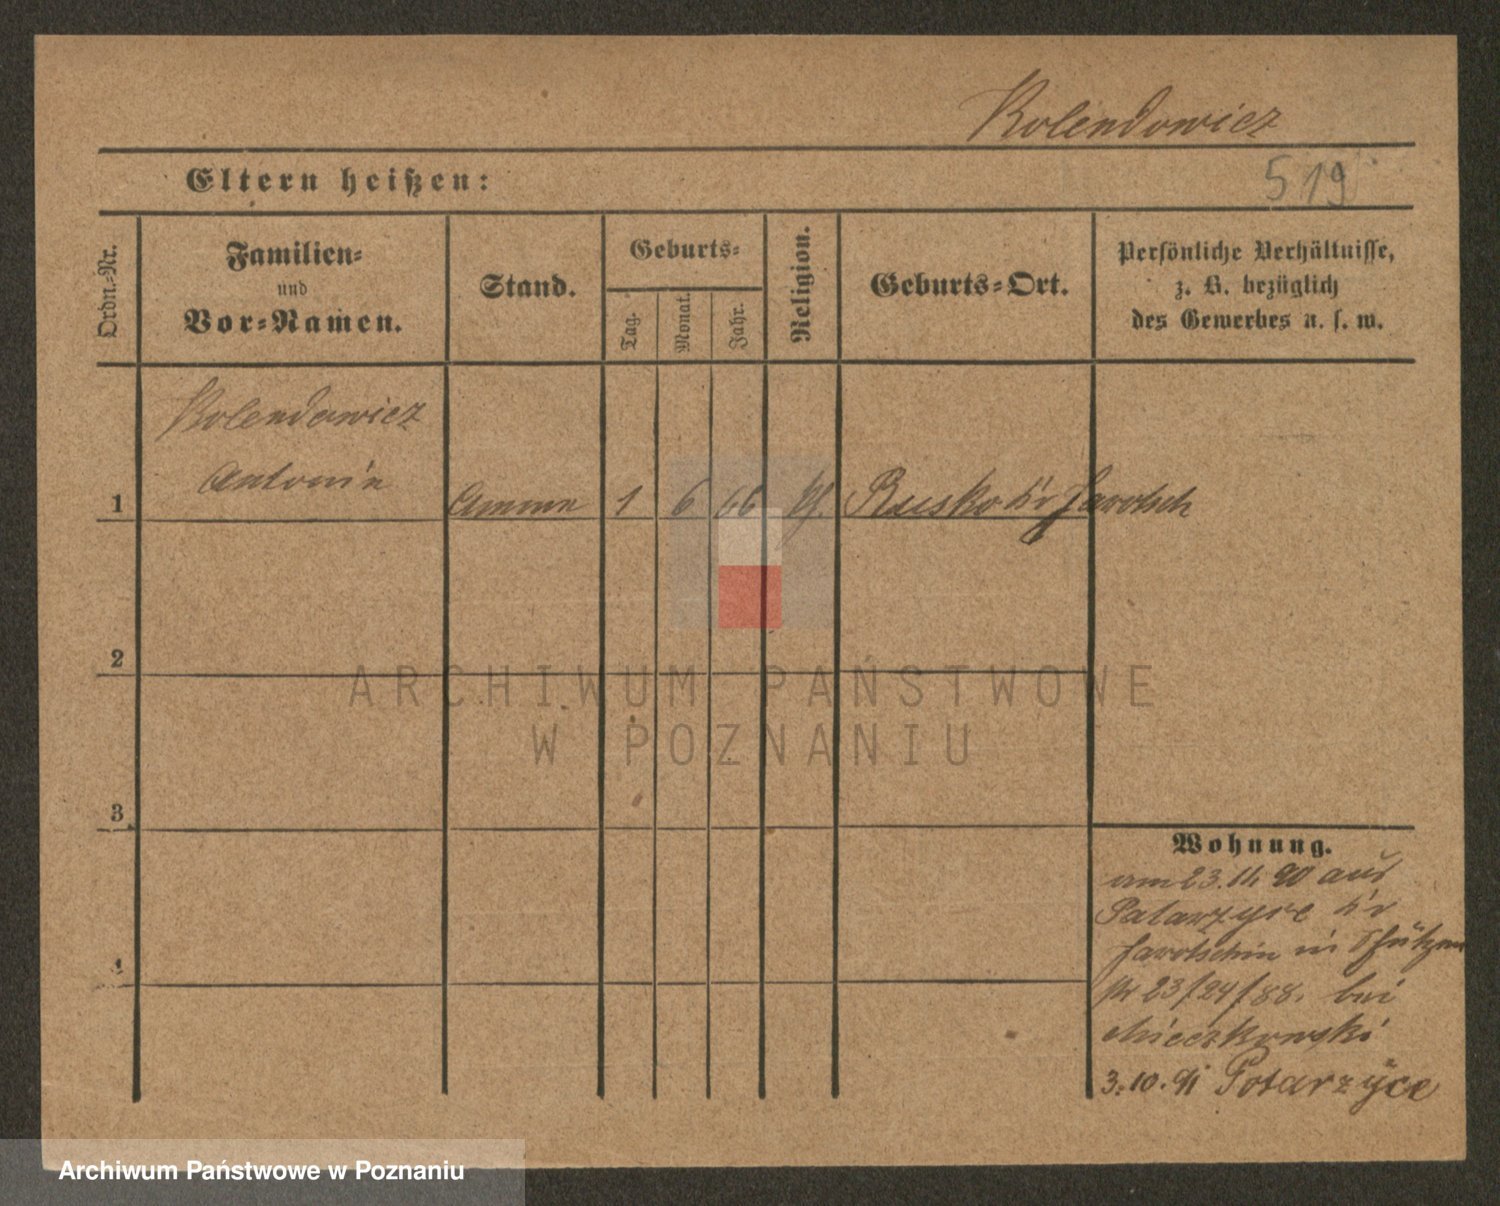 Kolendowicz
Eltern heißen:
519
Ordn.-Nr.
Familien-
und
Vor-Namen.
Stand.
Geburts-
Tag.
Monat.
Jahr.
Religion.
Geburts-Ort.
Persönliche Verhältnisse,
z. B. bezüglich
des Gewerbes u. s. w.
Kolendowicz
Antonie
1
Amme
1
6
66
Rusko Kr Jarotsch
2
ARCHIWUM PAŃSTWOWE
W POZNANIU
3
Wohnung.
am 23.11.90 aus
Potarzyce Kr
Jarotschin in Schützen
str 23/24/88. bei
Mieczkowski
3.10.91 Potarzyce
4
Archiwum Państwowe w Poznaniu